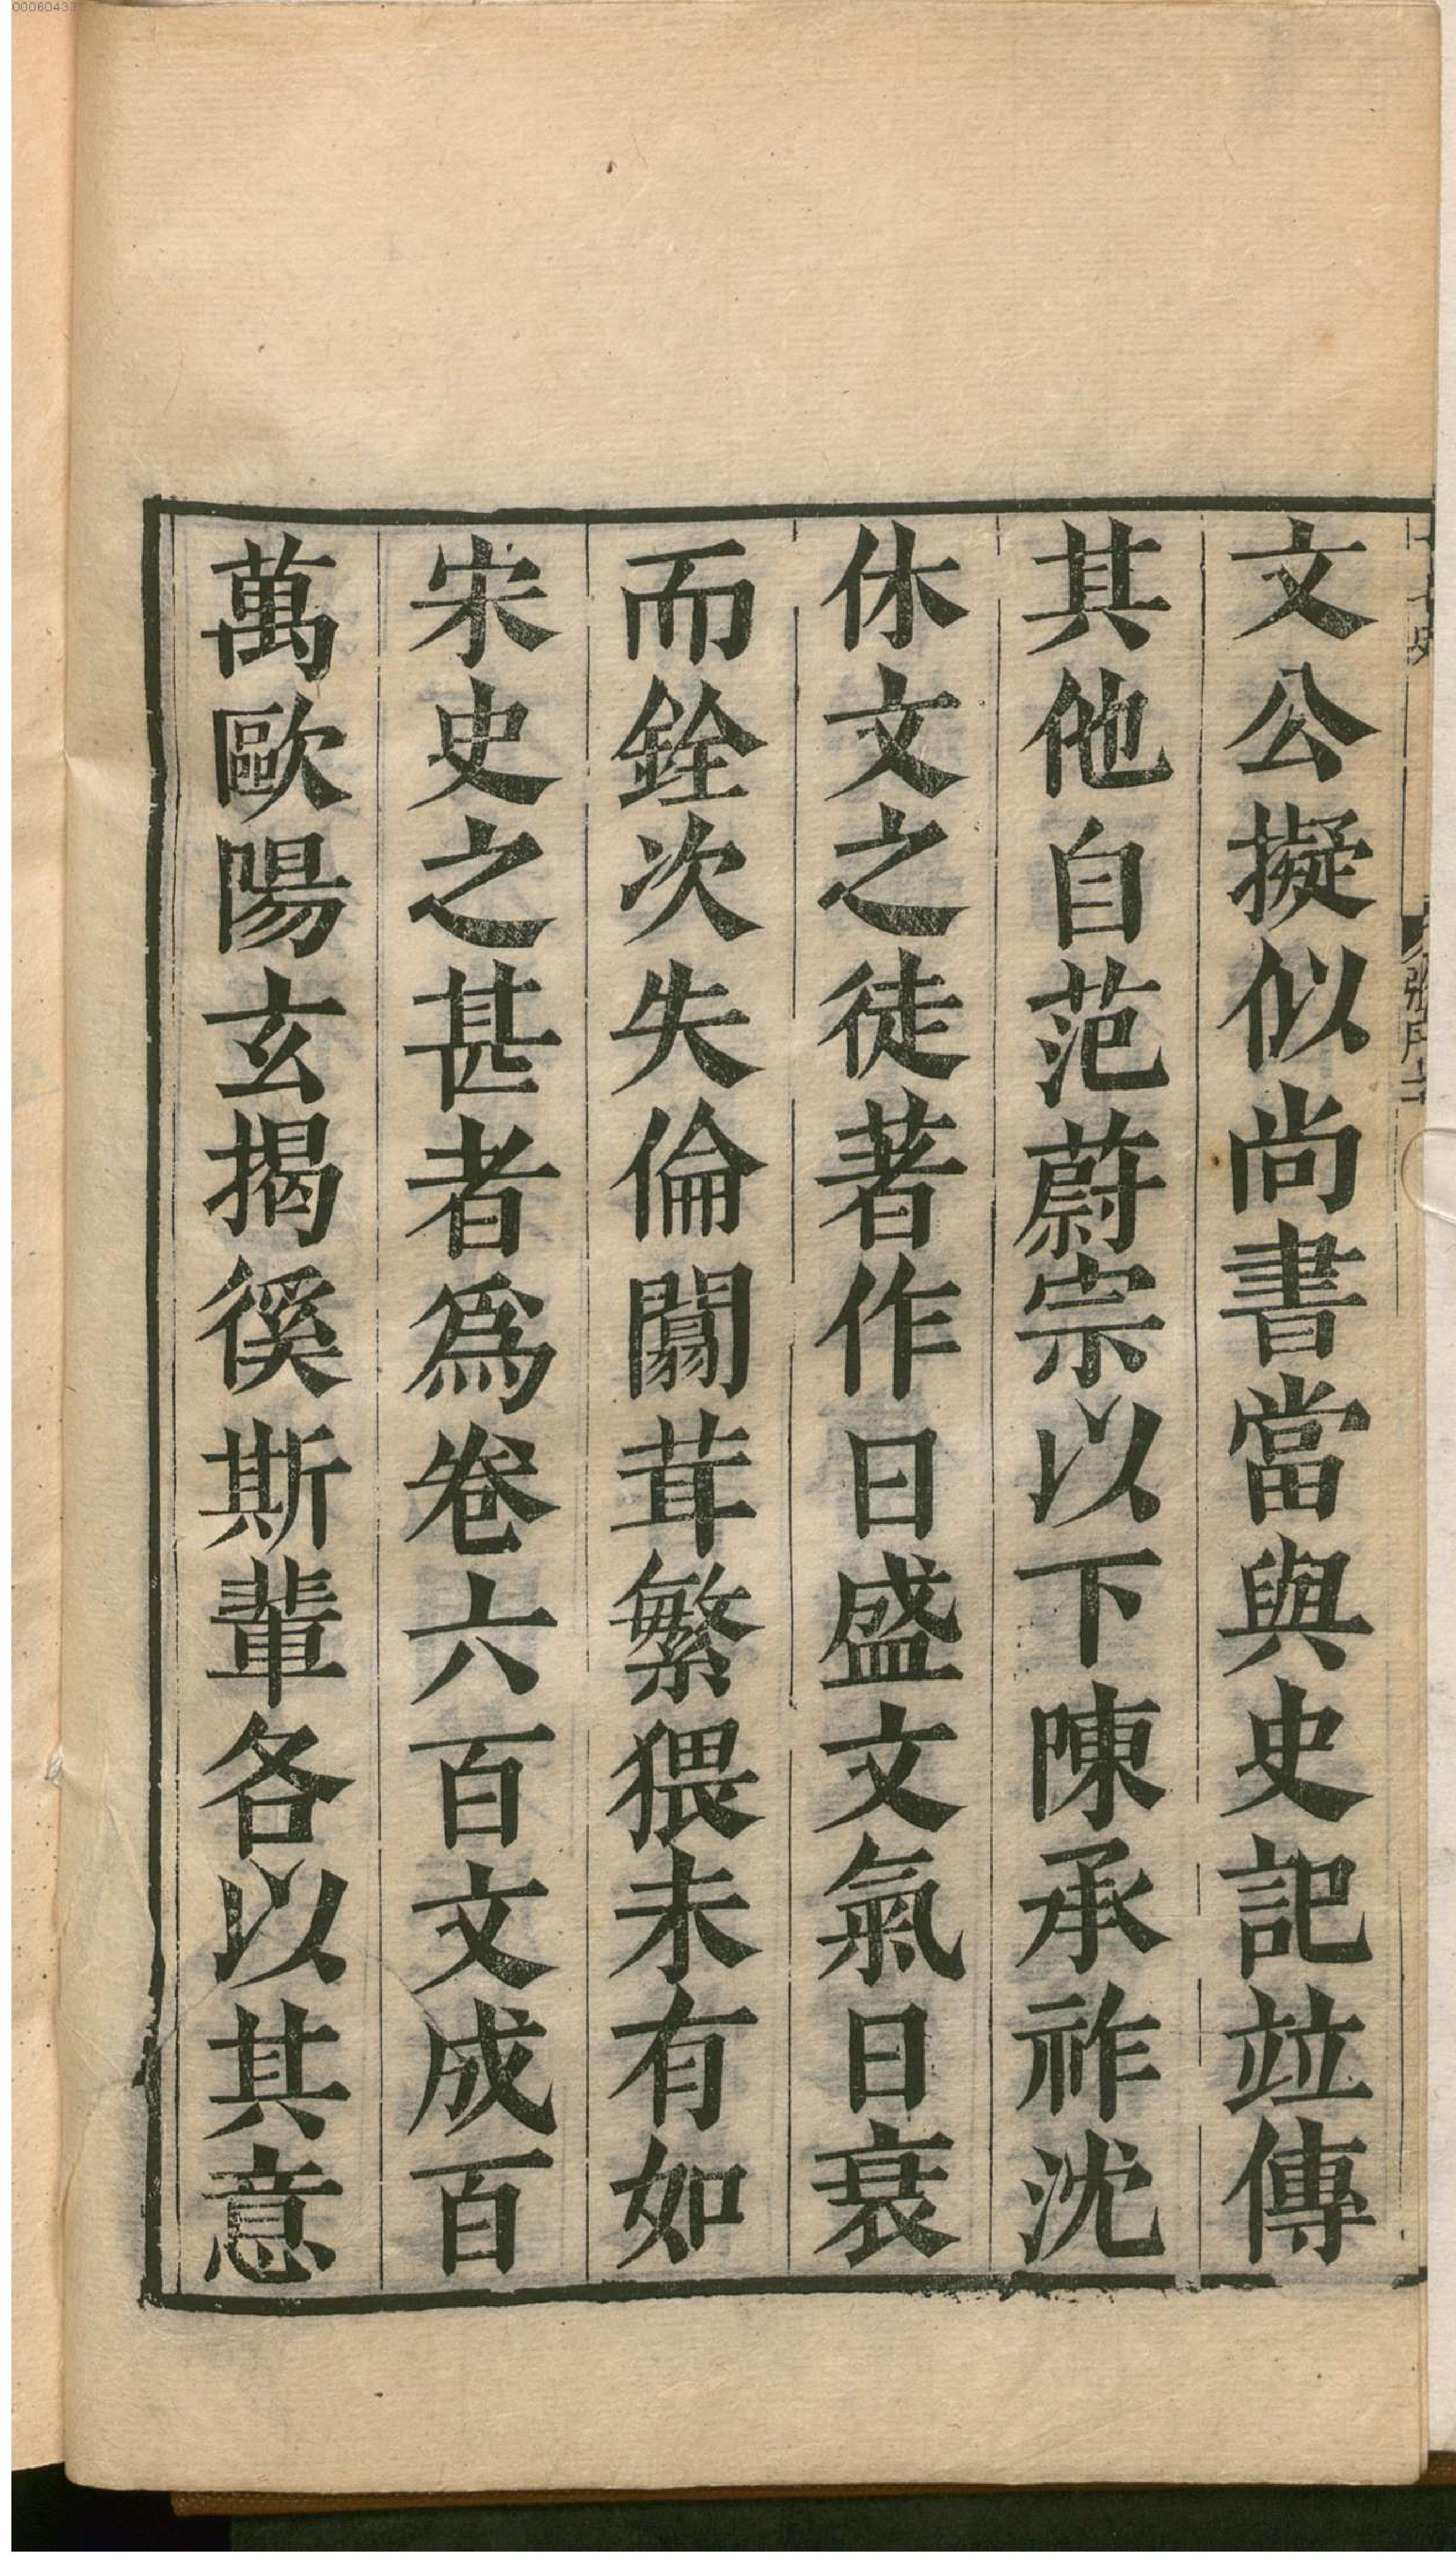 文公擬似尚書當與史記竝傳
其他自范蔚宗以下陳承祚沈
休文之徒著作日盛文氣日衰
而銓次失倫闒茸繁猥未有如
宋史之甚者爲卷六百文成百
萬歐陽玄揭徯斯輩各以其意